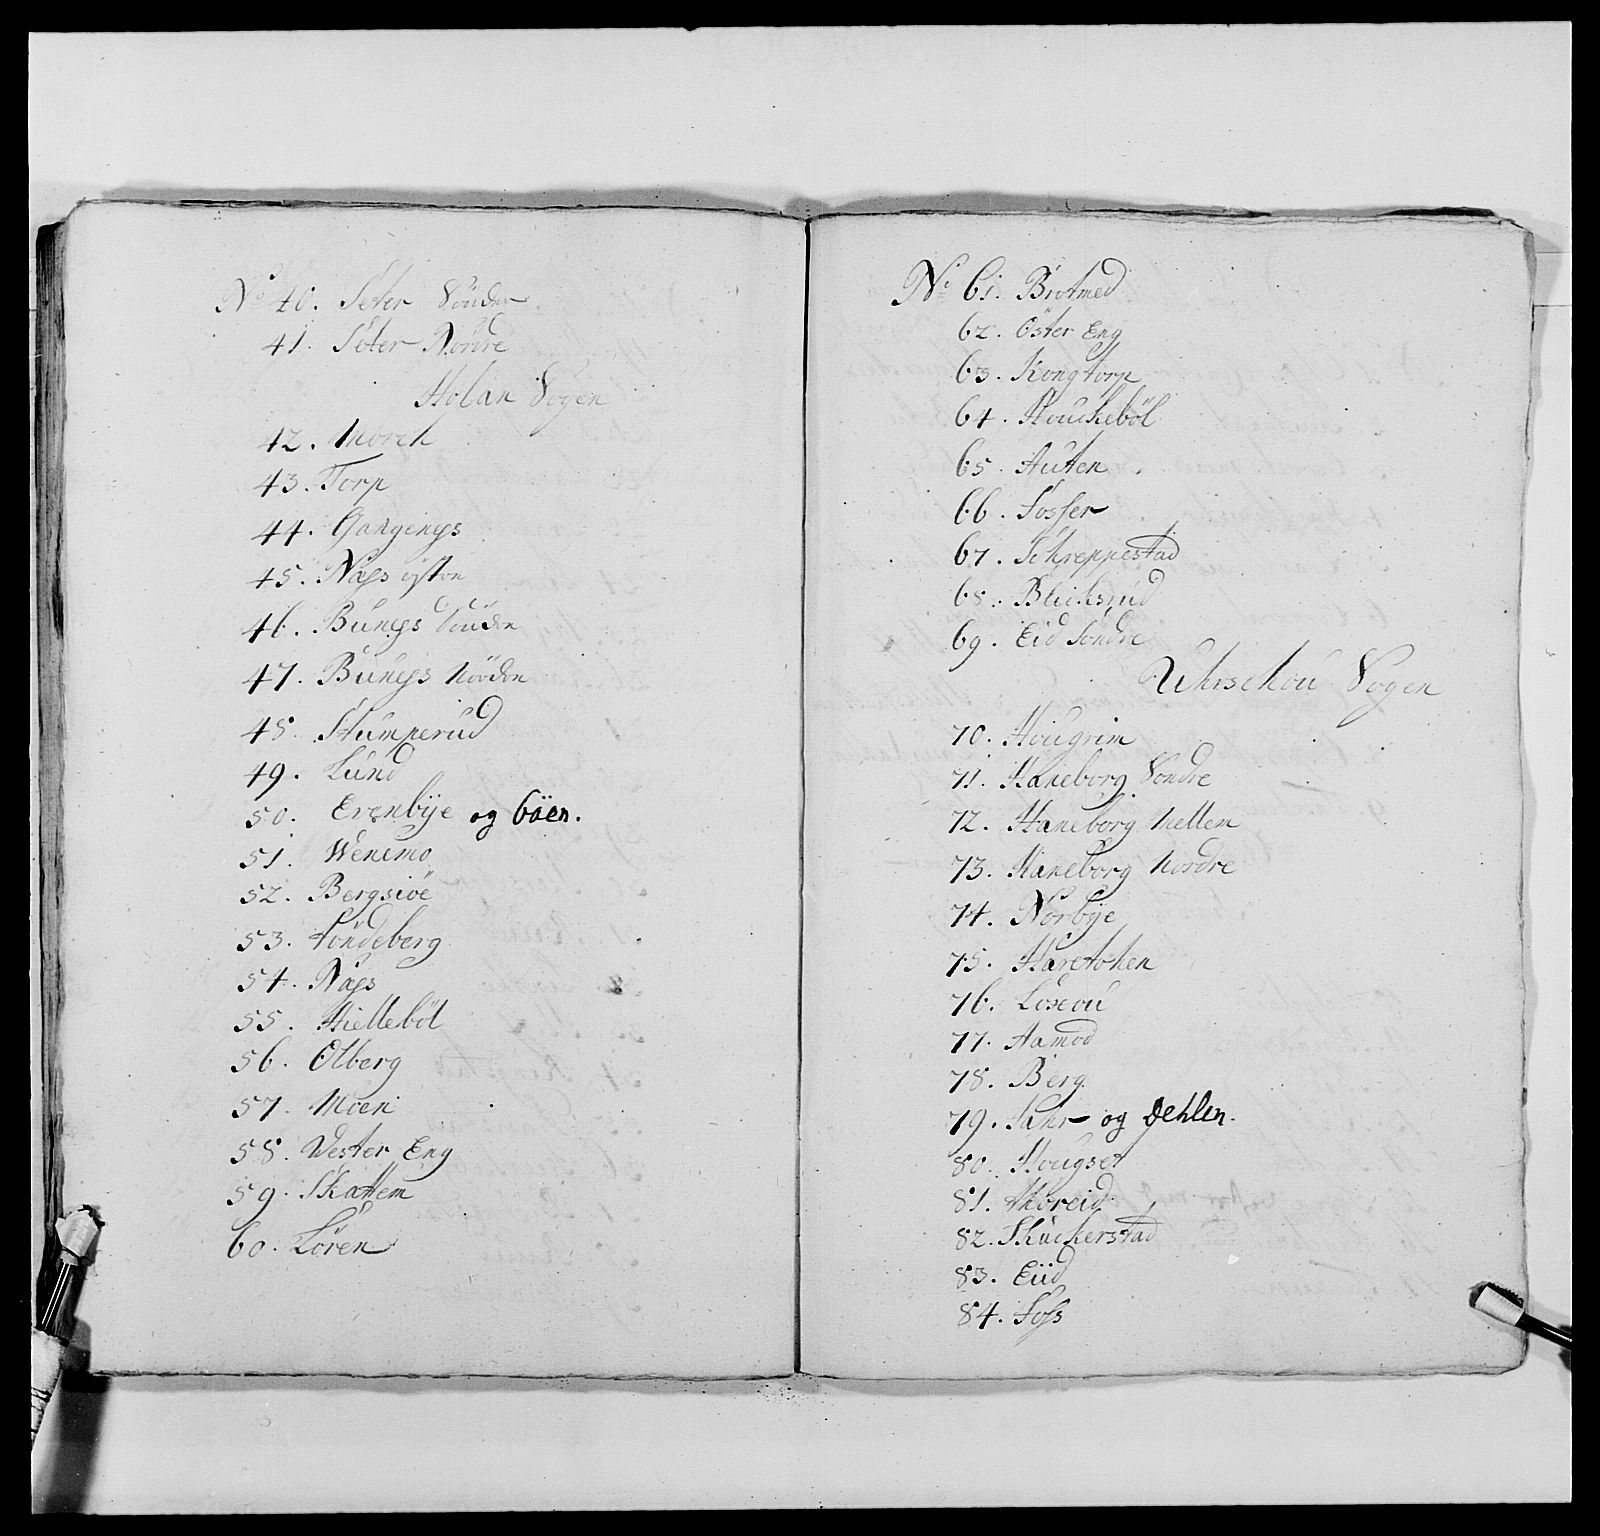 No 40. Seter Söndre
41. Seter Nordre
Holan Sogen
42. Morck
43. Torp
44. Gangenæs
45. Næss østre
46. Bunæss Söndre
47. Bunæss Nördre
48. Stumperud
49. Lund
50. Evenbÿe og böen.
51. Wenemo
52. Bergsiöe
53. Töndeberg
54. Næss
55. Hielleböl
56. Olberg
57. Moen
58. Wester Eng
59. Skattem
60. Lören
No 61. Brotmed
62. Öster Eng
63. Kongtorp
64. Houcheböl
65. Huten
66. Fosser
67. Schreppestad
68. Blichsrud
69. Eid Söndre
Uhrschou Sogen
70. Hougrim
71. Haneborg Söndre
72. Haneborg Mellem
73. Haneborg Nordre
74. Norbÿe
75. Haretohen
76. Loseou
77. Aamod
78. Berg
79. Sahr og Dehlen.
80. Hougset
81. Thoreid
82. Skuckerstad
83. Eiid
84. Foss